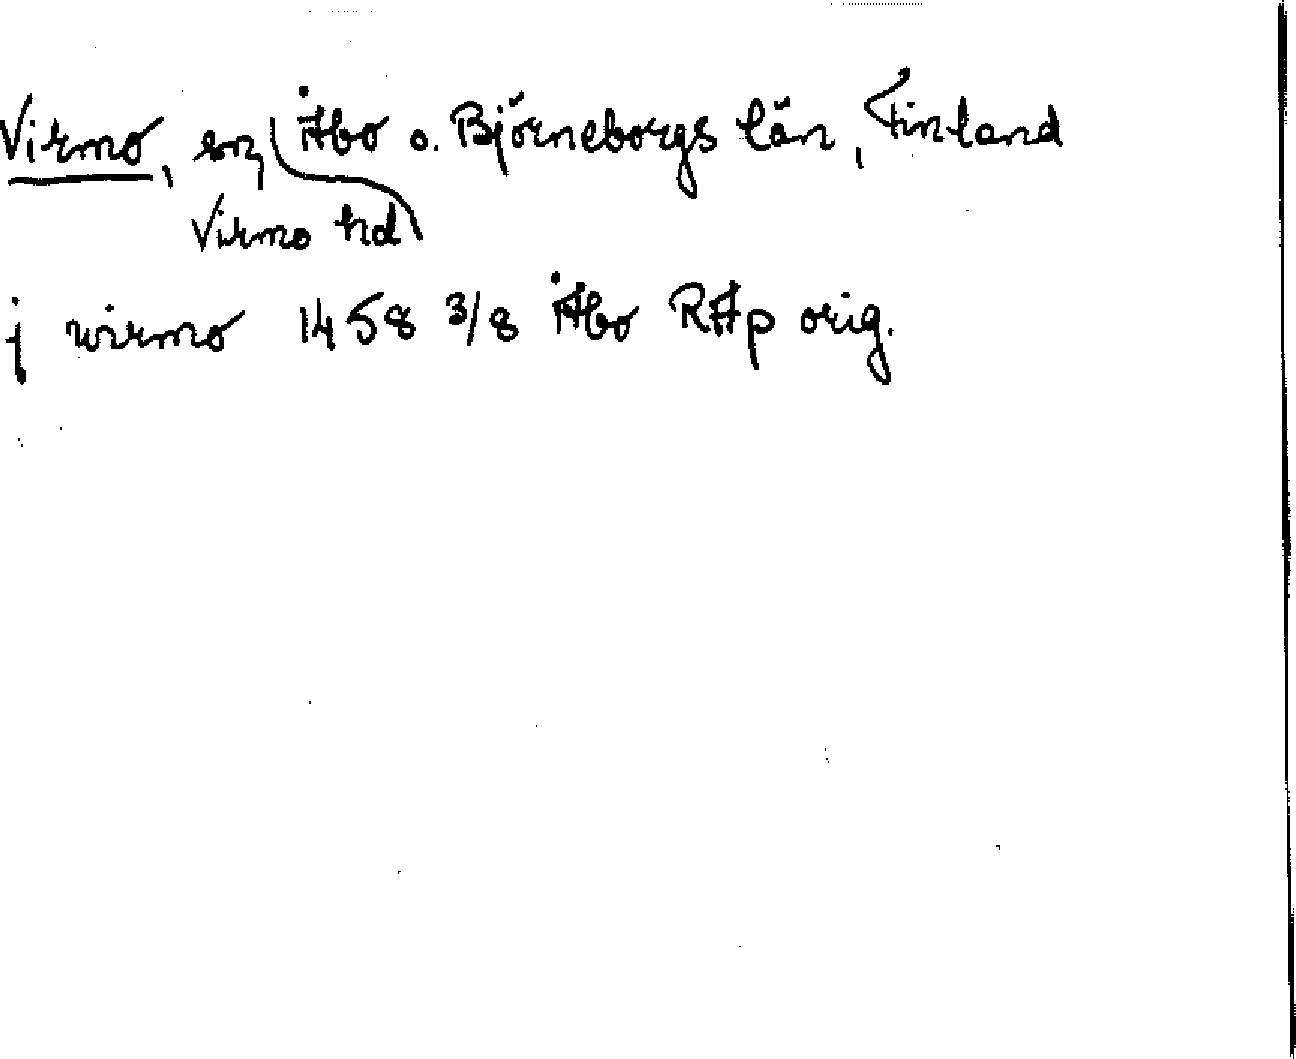 Virmo, sn, Åbo o. Björneborgs län, Finland
Virmo hd
j wirmo 1458 3/8 Åbo RAp orig.